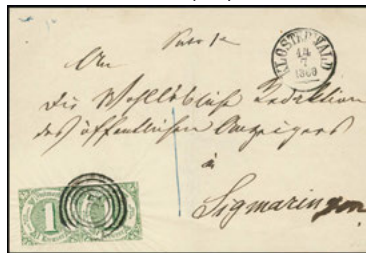 KLOSTERWALD
14
7
An
die Wohllöbliche Redaktion
des öffentlichen Anzeigers
Sigmaringen
1